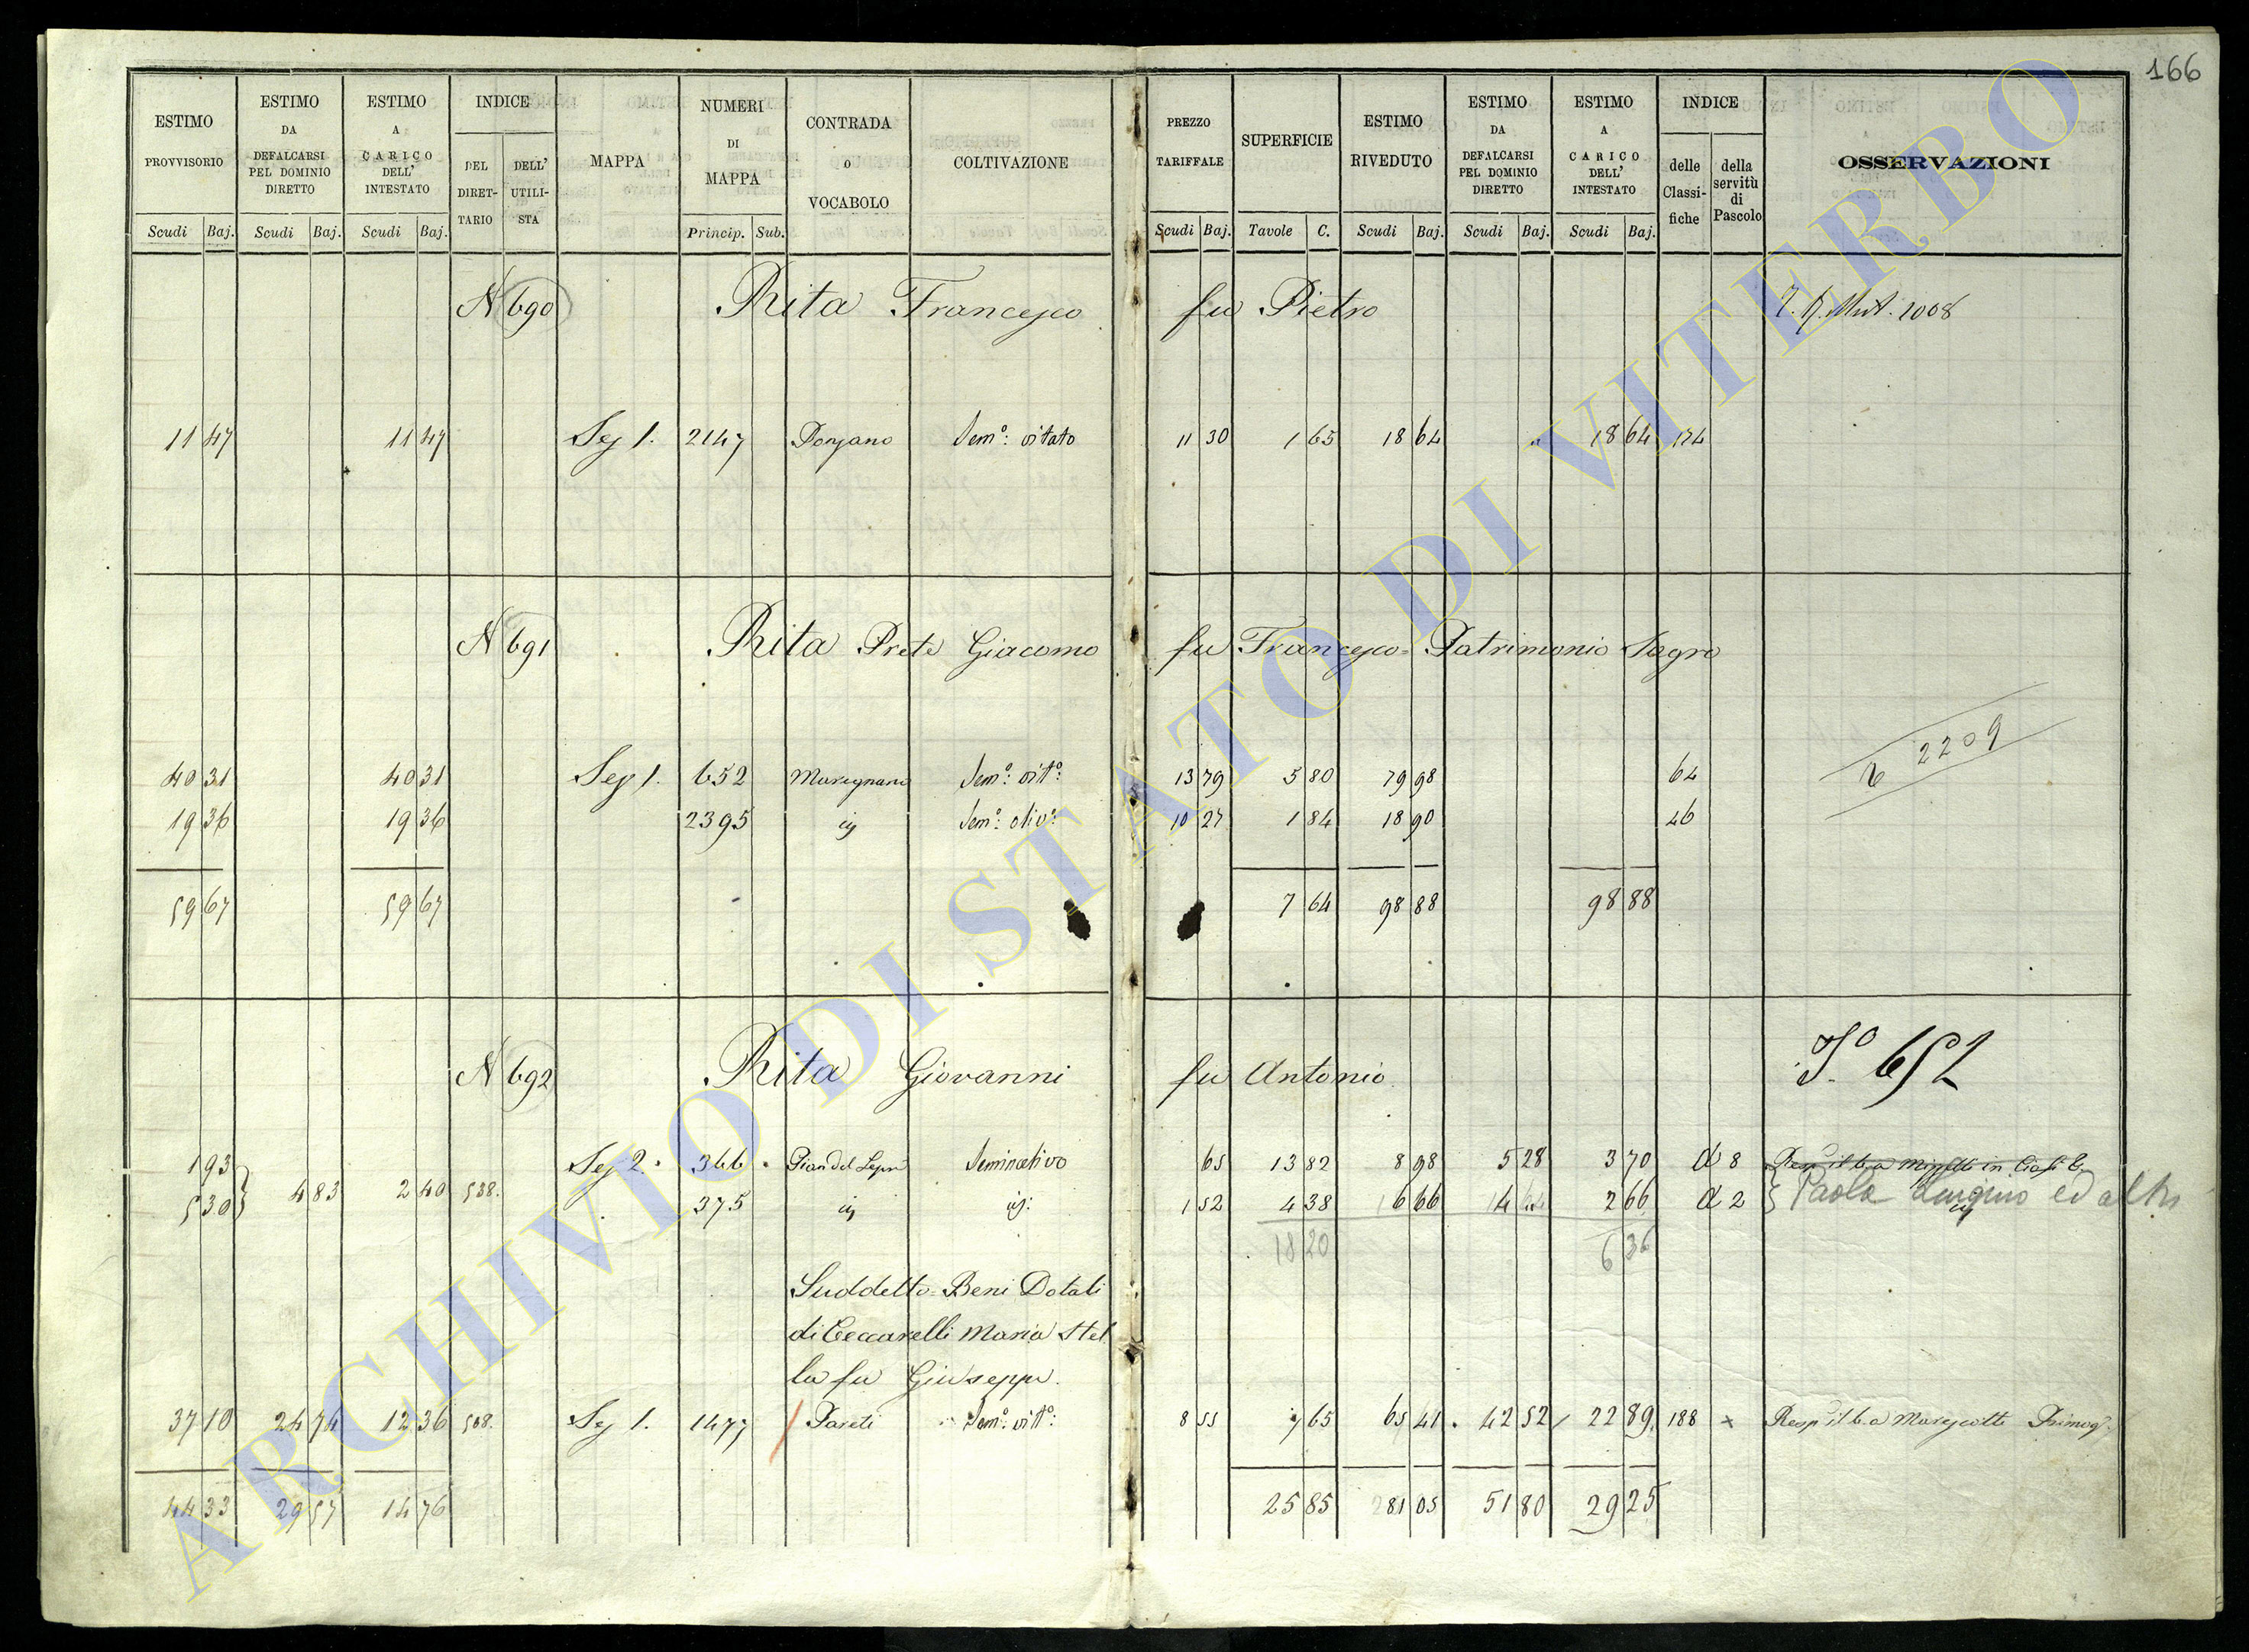 166
ESTIMO PROVVISORIO Scudi Baj.
ESTIMO DA DEFALCARSI PEL DOMINIO DIRETTO Scudi Baj.
ESTIMO A CARICO DELL' INTESTATO Scudi Baj.
INDICE DEL DIRETTARIO DELL' UTILISTA
MAPPA
NUMERI DI MAPPA Princip. Sub.
CONTRADA O VOCABOLO
COLTIVAZIONE
PREZZO TARIFFALE Scudi Baj.
SUPERFICIE Tavole C.
ESTIMO RIVEDUTO Scudi Baj.
ESTIMO DA DEFALCARSI PEL DOMINIO DIRETTO Scudi Baj.
ESTIMO A CARICO DELL' INTESTATO Scudi Baj.
INDICE delle Classifiche della servitù di Pascolo
OSSERVAZIONI
N 690 Rita Francesco fu Pietro Mut. 1008
11 47 11 47 Sez 1. 2147 Sem.o: vitato 11 30 1 65 18 64 18 64 174
N 691 Rita Prete Giacomo fu Francesco = Patrimonio Sagro
2209
40 31 40 31 Sez 1. 652 Marignano Sem.o: vit.o: 13 79 5 80 79 98 64
19 36 19 36 2395 Sem.o: oliv.o: 10 27 1 84 18 90 46
59 67 59 67 7 64 98 88 98 88
N 692 Rita Giovanni fu Antonio
S.o 652
1 93 Sez 2. 366 Pian del Lepre Seminativo 65 13 82 8 98 5 28 3 70 d 8
5 30 4 83 2 40 538. 375 1 52 4 38 6 66 2 66 d 2 Paola ed altri
18 20 6 36
Suddetto = Beni Dotali
di Ceccarelli Maria Stel
la fu Giuseppe.
37 10 24 74 12 36 538. Sez 1. 1477 Pareti Sem.o: vit.o: 8 55 7 65 65 41 42 52 22 89 188 x
44 33 29 57 14 76 25 85 81 05 51 80 29 25
ARCHIVIO DI STATO DI VITERBO